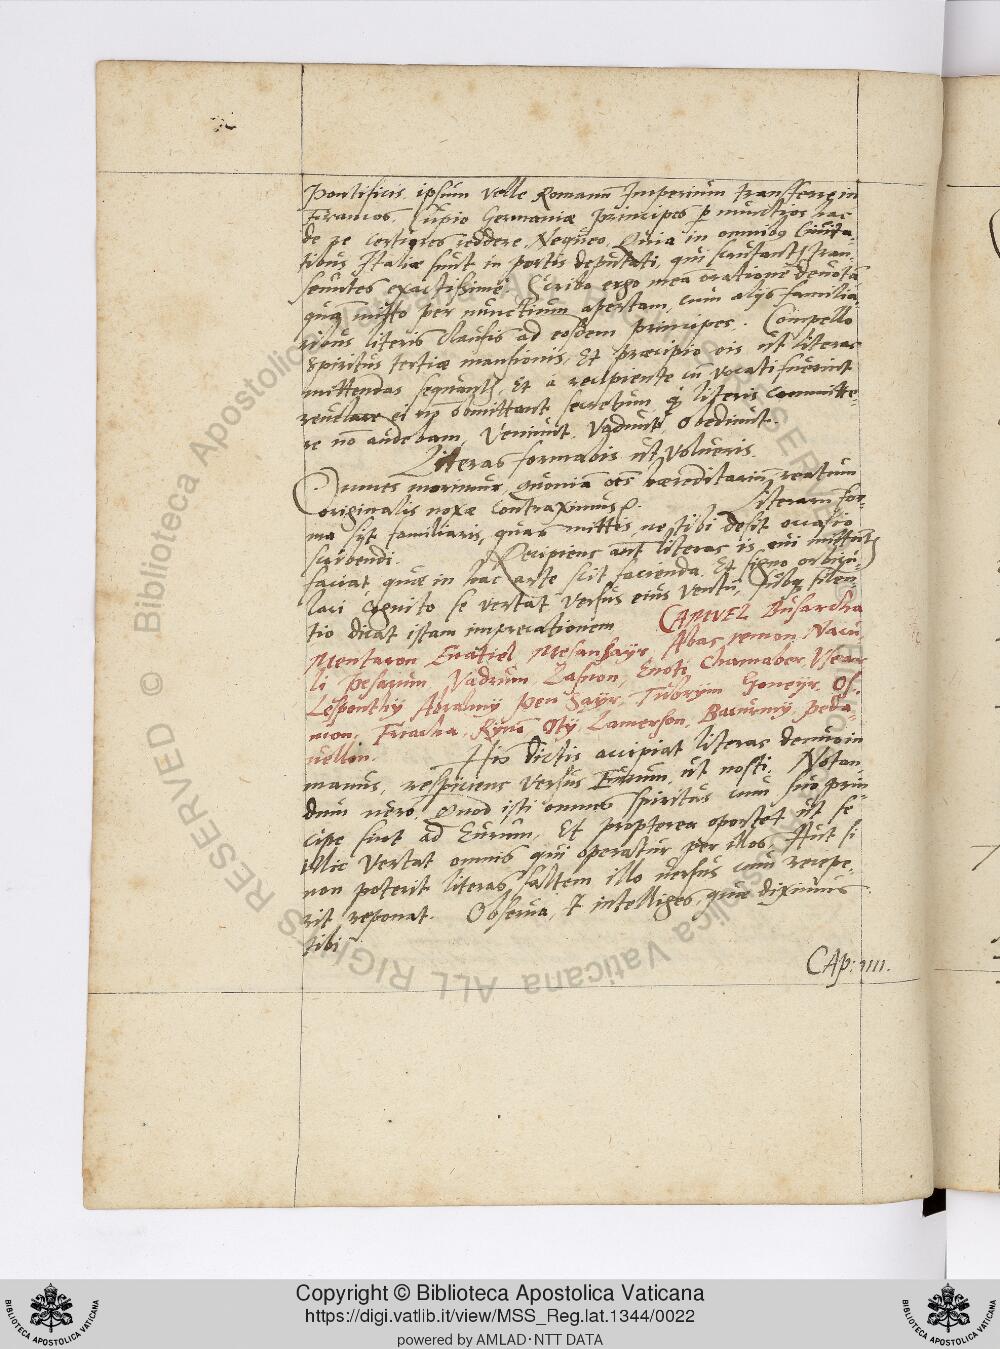 Pontificis ipsum velle Romanũ Imperium transferre in
Francos. Cupio Germaniæ principes p nunctios hac
de re certiores reddere. Nequeo. Quia in omnibus Civita-
tibus Italiæ sunt in portis deputati, qui scrutant tran-
seuntes exactissime. Scribo ergo meã orationẽ devotã
quã mitto per nunctium apertam, cum alijs familia-
ribus literis clausis ad eosdem principes. Compello
Spiritus tertiæ mansionis, Et præcipio eis ut literas
mittendas sequant, Et a recipiente cũ vocati fuerint
revelare ei nõ obmittant secretum qd literis committe-
re nõ audebam. Veniunt. Vadunt, obediunt.
Literas formabis ut volueris.
Omnes morimur, quoniã oẽs hæreditariũ reatum
originalis noxæ contraximus. Literarũ for-
ma sit familiaris, quas mittis, ne tibi desit occasio
scribendi. Recipiens aut literas is, cui mittunt
faciat, quæ in hac arte scit facienda. Et signo orbicu-
laci cognito se vertat versus eius ventũ, subq silen-
tio dicat istam imprecationem CAMUEL Busarcha
Menaton Enatiel Mesansayr, Abas remon, Nacu
li pesarum Vadrum Lasmon, Enoti Chamaber, Vsear
Lesponthy Abrulmy Pen Sayr, Tubrym Goneyr, Os-
mon, Friacha, Rynõ Oty, Lamerson, Bacurmy, Peda-
uellon. His dictis accipiat literas denuo in
manus, respiciens versus Eurum, ut nosti. Notan
dum vero, Quod isti omnes spiritus cum suo prin-
cipe sint ad Eurum, Et propterea oportet ut se
illic vertat omnis qui operatur per illos. Aut si
non poterit literas saltem illo versus cum recepe-
rit reponat. Observa, & intelliges, quæ diximus
tibi
CAp: IIII.
Copyright © Biblioteca Apostolica Vaticana
https://digi.vatlib.it/view/MSS_Reg.lat.1344/0022
powered by AMLAD·NTT DATA
BIBLIOTECA APOSTOLICA VATICANA
BIBLIOTECA APOSTOLICA VATICANA
© Biblioteca Apostolica Vaticana ALL RIGHTS RESERVED